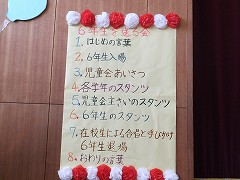 6年生を送る会
1. はじめの言葉
2. 6年生入場
3. 児童会あいさつ
4. 各学年のスタンツ
5. 児童会主さいのスタンツ
6. 6年生のスタンツ
7. 在校生による合唱と呼びかけ
6年生退場
8. おわりの言葉